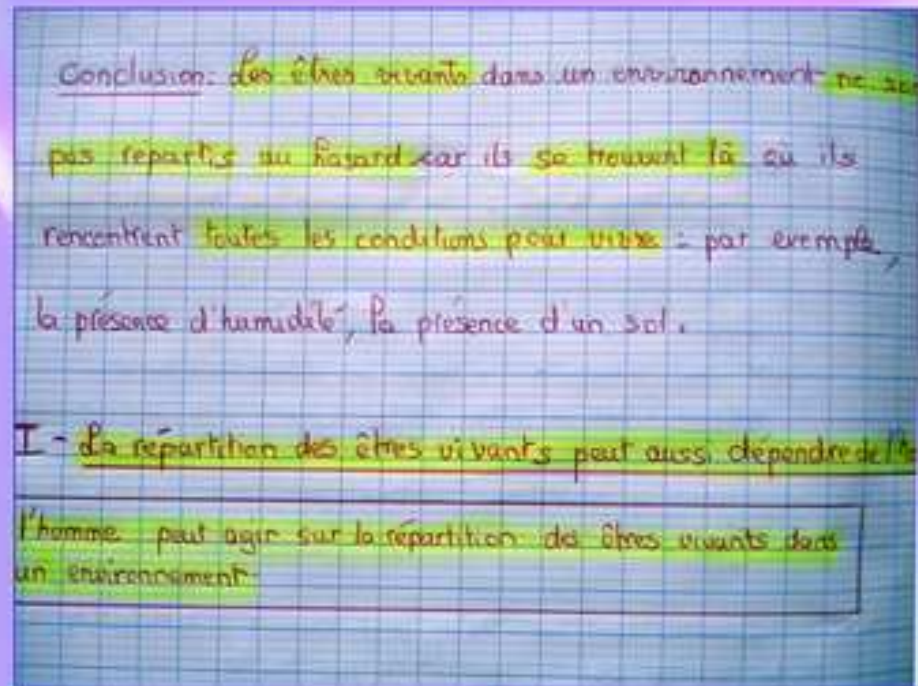 Conclusion: Les êtres vivants dans un environnement ne
pas répartis au hasard car ils se trouvent là où ils
rencontrent toutes les conditions pour vivre : par exemple,
la présence d'humidité, la présence d'un sol.
I - La répartition des êtres vivants peut aussi dépendre de l'
l'homme peut agir sur la répartition des êtres vivants dans
un environnement